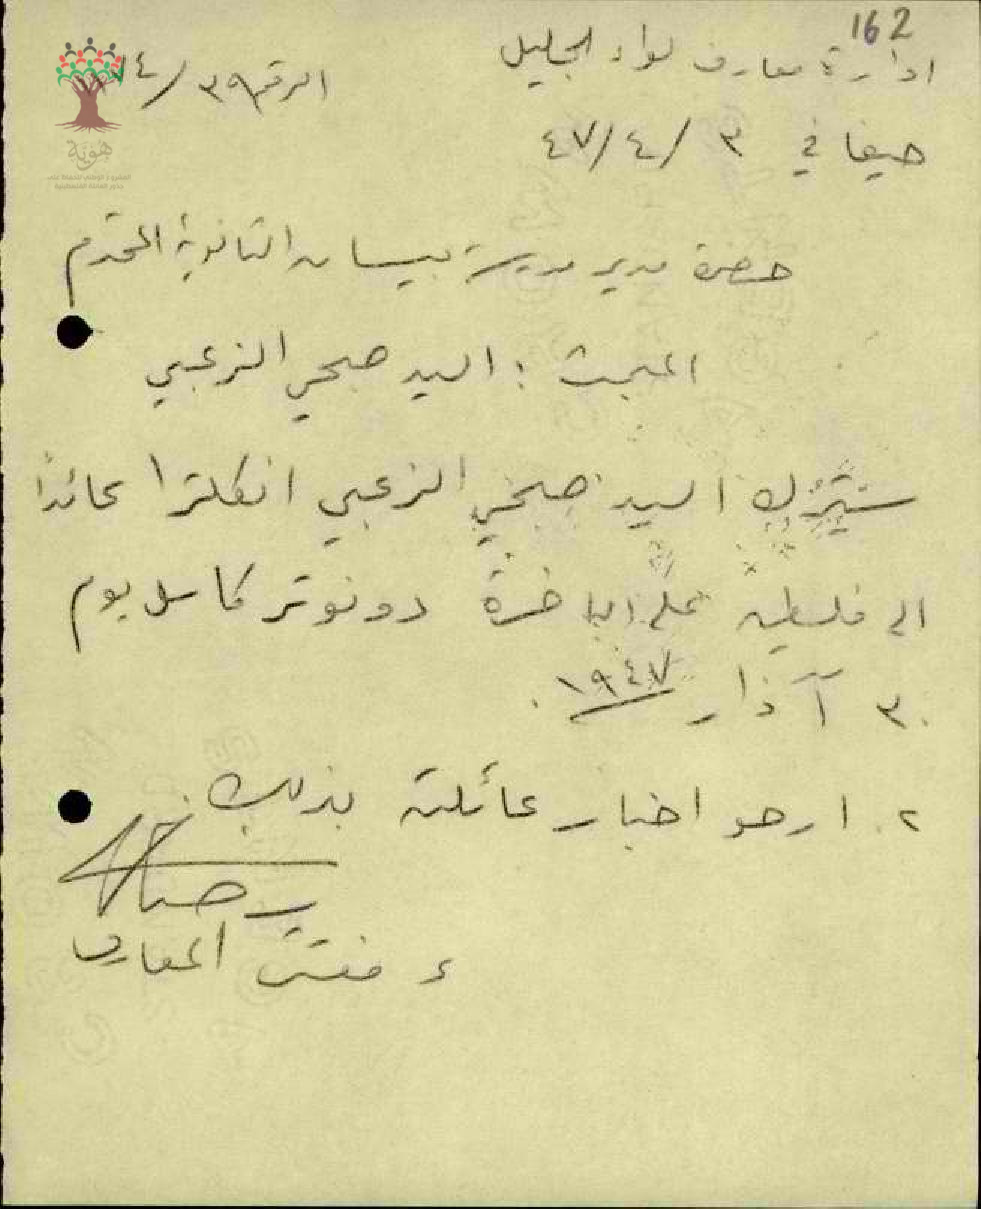 162
ادارة معارف لواء الجليل
الرقم ٣٩/
حيفا في ٣/٤/٤٧
حضرة مدير مدرسة بيسان الثانوية المحترم
المبحث : السيد صبحي الزعبي
سيترك السيد صبحي الزعبي انكلترا عائداً
الى فلسطين على الباخرة دونوتر كاسل يوم
٣٠ آذار ١٩٤٧.
٢. ارجو اخبار عائلته بذلك.
مفتش المعارف
هوية